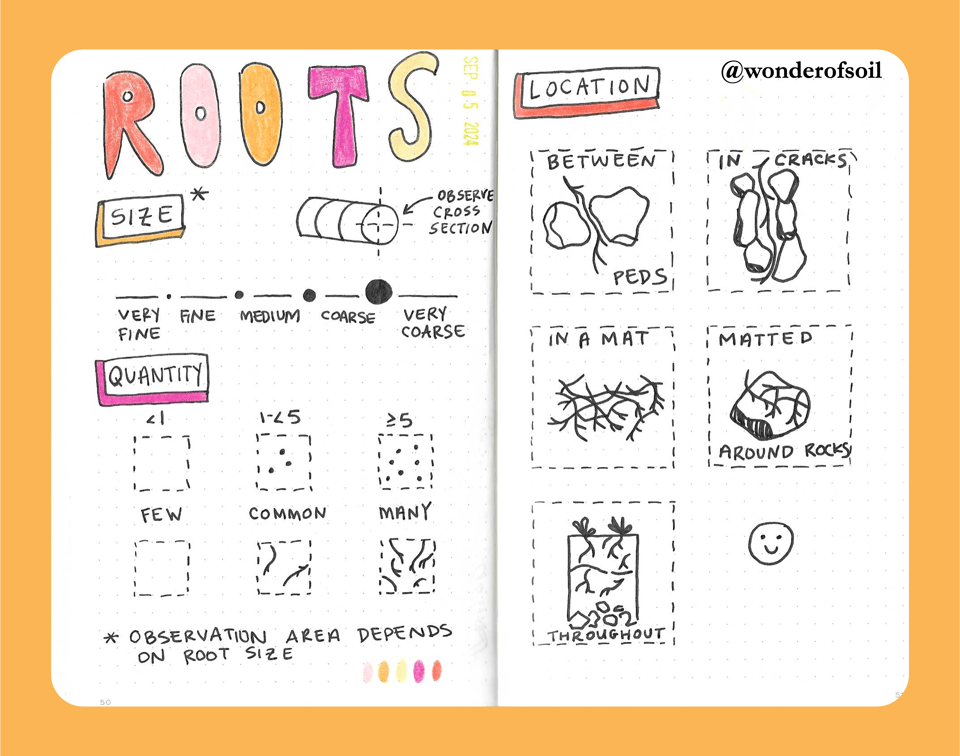 @wonderofsoil
ROOTS
SEP 05 2024
SIZE *
OBSERVE
CROSS
SECTION
VERY FINE
FINE
MEDIUM
COARSE
VERY COARSE
QUANTITY
<1 1-<5 ≥5
FEW COMMON MANY
* OBSERVATION AREA DEPENDS
ON ROOT SIZE
50
LOCATION
BETWEEN
PEDS
IN CRACKS
IN A MAT
MATTED
AROUND ROCKS
THROUGHOUT